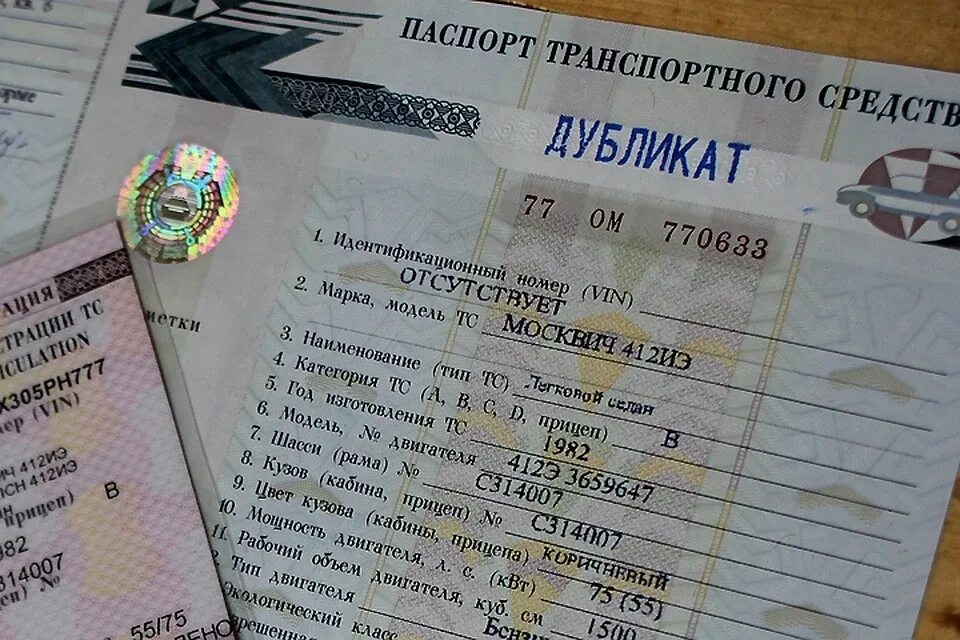 ПАСПОРТ ТРАНСПОРТНОГО СРЕДСТВ
ДУБЛИКАТ
77 ОМ 770633
1. Идентификационный номер (VIN)
ОТСУТСТВУЕТ
2. Марка, модель ТС МОСКВИЧ 412ИЭ
3. Наименование (тип ТС) Легковой седан
4. Категория ТС (A, B, C, D, прицеп) B
5. Год изготовления ТС 1982
6. Модель, № двигателя 412Э 3659647
7. Шасси (рама) № С314007
8. Кузов (кабина, прицеп) № С314007
9. Цвет кузова (кабины, прицепа) КОРИЧНЕВЫЙ
10. Мощность двигателя, л. с. (кВт) 75 (55)
11. Рабочий объем двигателя, куб. см 1500
Тип двигателя Бензин
Экологический класс
метки
АЦИЯ
СТРАЦИИ ТС
ICULATION
Х305РН777
ер (VIN)
ИЧ 412ИЭ
ЛСН 412ИЭ
прицеп) B
82
314007
№
55/75